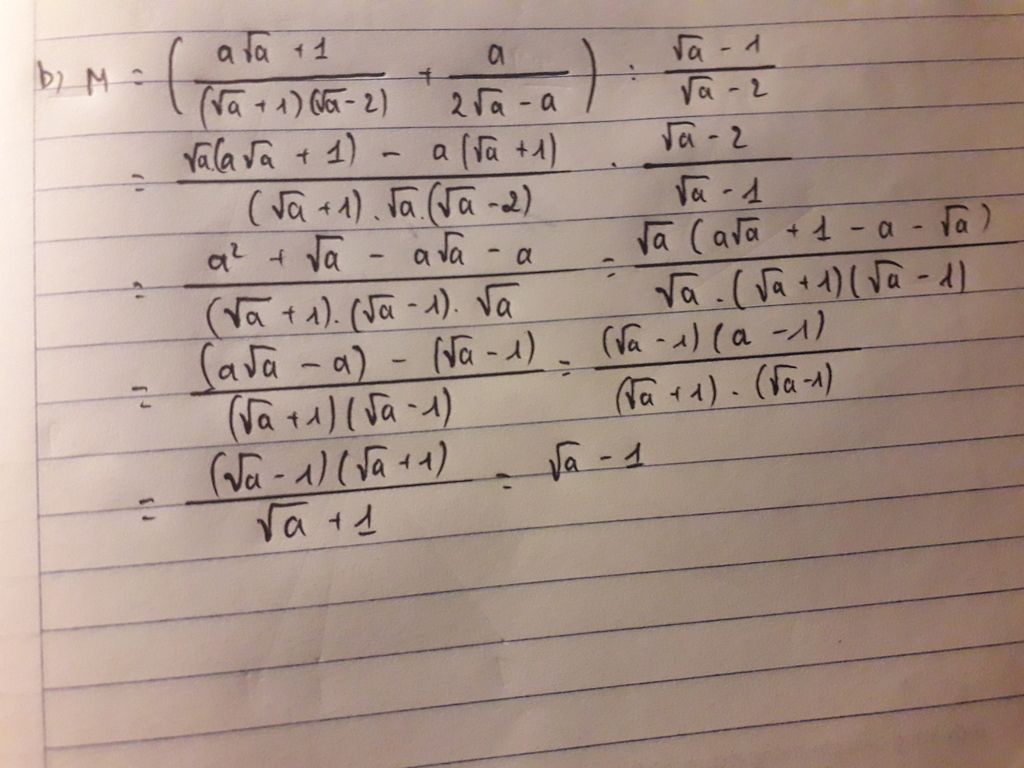 b) M = ( (a√a + 1)/((√a + 1)(√a - 2)) + a/(2√a - a) ) : (√a - 1)/(√a - 2)
= (√a.(a√a + 1) - a(√a + 1))/((√a + 1).√a.(√a - 2)) . (√a - 2)/(√a - 1)
= (a² + √a - a√a - a)/((√a + 1).(√a - 1).√a) = (√a (a√a + 1 - a - √a))/(√a.(√a + 1)(√a - 1))
= ((a√a - a) - (√a - 1))/((√a + 1)(√a - 1)) = ((√a - 1)(a - 1))/((√a + 1).(√a - 1))
= ((√a - 1)(√a + 1))/(√a + 1) = √a - 1